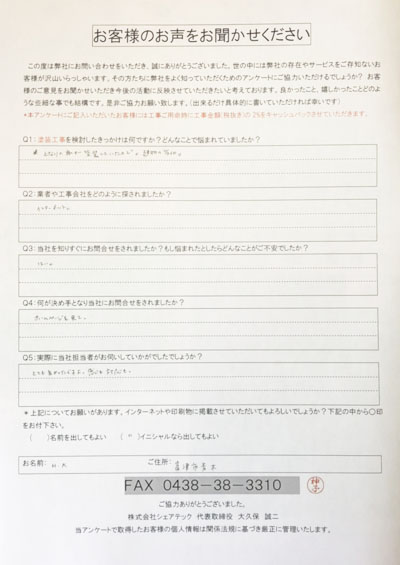 お客様のお声をお聞かせください
この度は弊社にお問い合わせをいただき、誠にありがとうございました。世の中には弊社の存在やサービスをご存知ないお
客様が沢山いらっしゃいます。その方たちに弊社をよく知っていただくためのアンケートにご協力いただけるでしょうか? お客
様のご意見をお聞かせいただき今後の活動に反映させていきたいと考えております。良かったこと、嬉しかったことどのよ
うな些細な事でも結構です。是非ご協力お願い致します。(出来るだけ具体的に書いていただければ幸いです)
*本アンケートにご記入いただいたお客様には工事ご用命時に工事金額(税抜き)の2%をキャッシュバックさせていただきます。
Q1:塗装工事を検討したきっかけは何ですか?どんなことで悩まれていましたか?
Q2:業者や工事会社をどのように探されましたか?
インターネット。
Q3:当社を知りすぐにお問合せをされましたか?もし悩まれたとしたらどんなことがご不安でしたか?
はい。
Q4:何が決め手となり当社にお問合せをされましたか?
ホームページを見て。
Q5:実際に当社担当者がお伺いしていかがでしたでしょうか?
とても良かったです。
*上記についてお願いがあります。インターネットや印刷物に掲載させていただいてもよろしいでしょうか?下記の中から〇印
をお付下さい。
( )名前を出してもよい ( )イニシャルなら出してもよい
お名前: H.K ご住所: 君津市
FAX 0438-38-3310
ご協力ありがとうございました。
株式会社シェアテック 代表取締役 大久保 誠二
当アンケートで取得したお客様の個人情報は関係法規に基づき厳正に管理いたします。